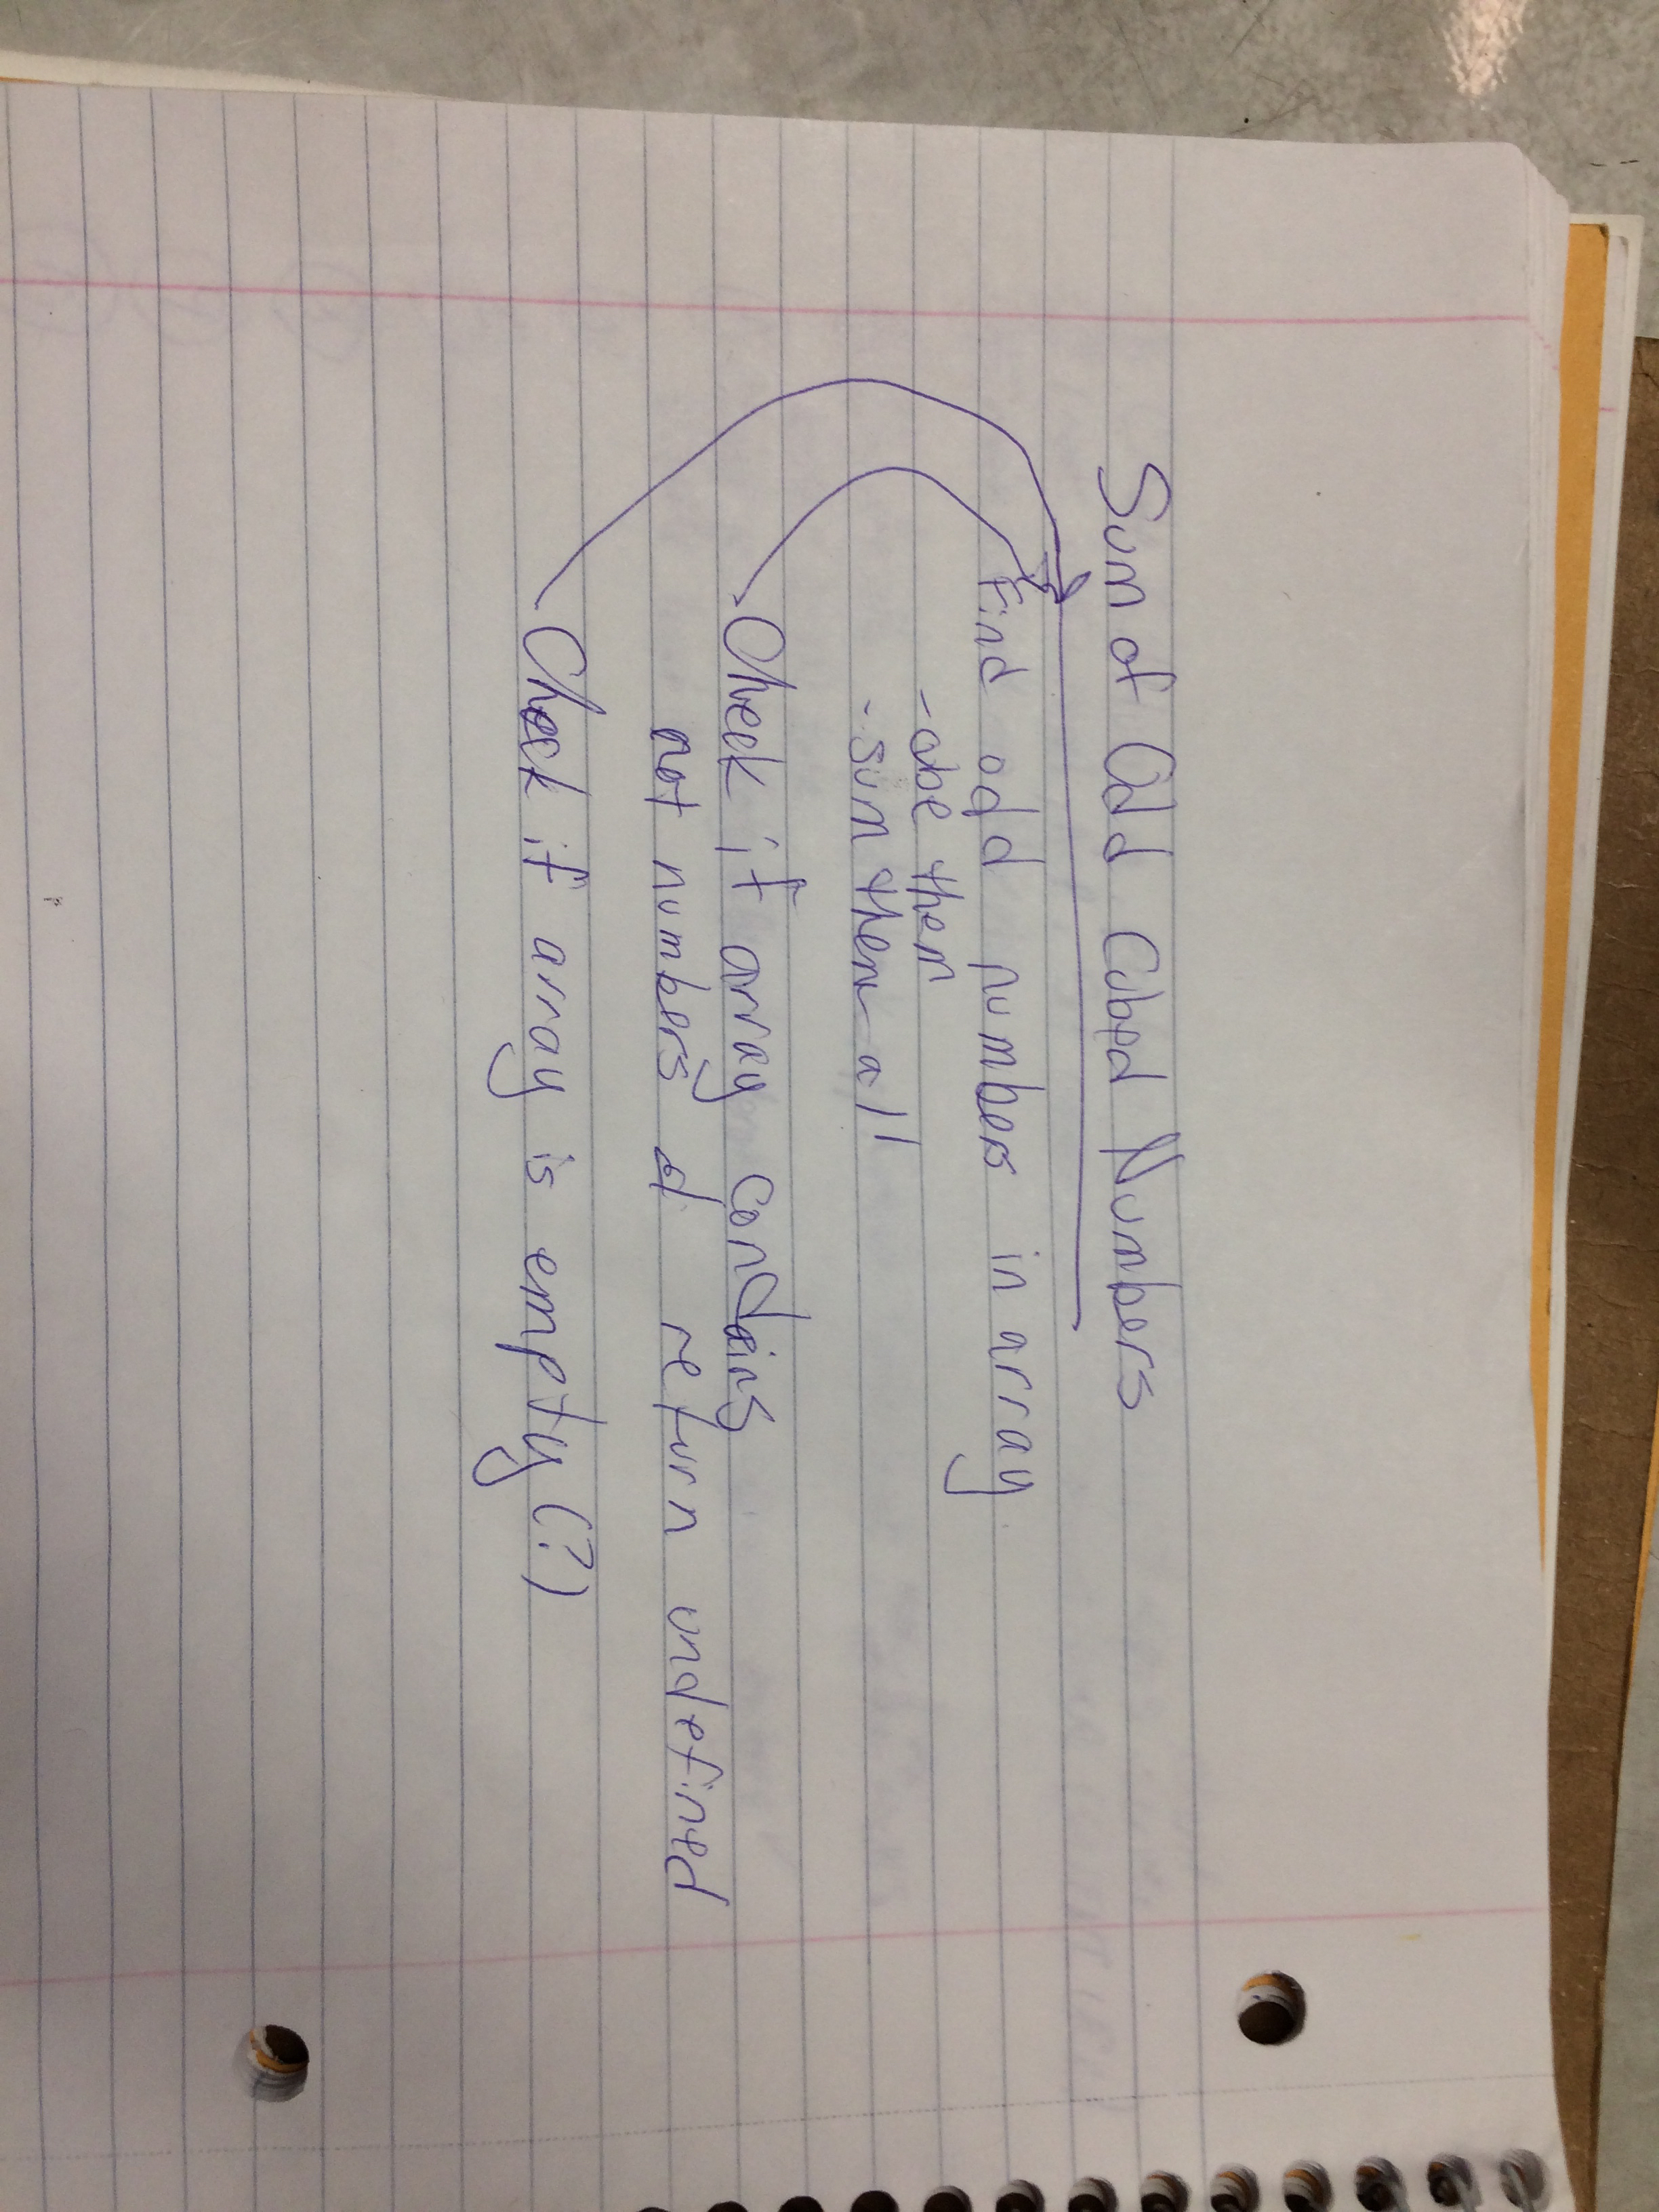 Sum of Odd Cubed Numbers
Find odd numbers in array
- cube them
- sum them all
Check if array contains
not numbers & return undefined
Check if array is empty (?)